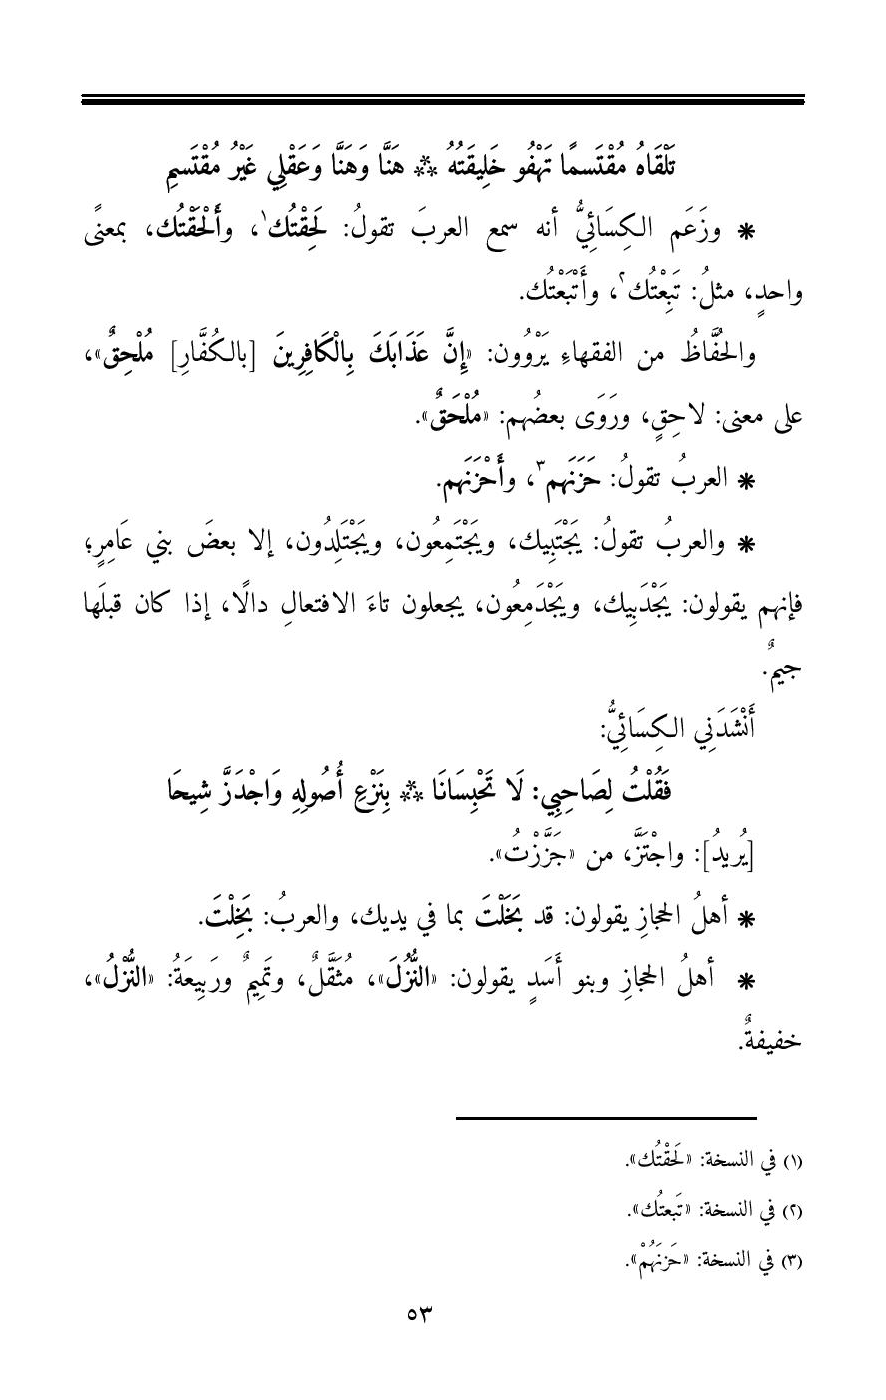 تَلْقَاهُ مُقْتَسمًا تَهْفُو خَلِيقَتُهُ ** هَنَّا وَهَنَّا وَعَقْلِي غَيْرُ مُقْتَسمِ
* وزَعَم الكِسَائِيُّ أنه سمع العربَ تقولُ: لَحِقْتُك١، وأَلْحَقْتُك، بمعنًى
واحدٍ، مثلُ: تَبِعْتُك٢، وأَتْبَعْتُك.
والحُفَّاظُ من الفقهاءِ يَرْوُون: «إِنَّ عَذَابَكَ بِالْكَافِرِينَ [بالكُفَّارِ] مُلْحِقٌ»،
على معنى: لاحِقٍ، ورَوَى بعضُهم: «مُلْحَقٌ».
* العربُ تقولُ: حَزَنَهم٣، وأَحْزَنَهم.
* والعربُ تقولُ: يَجْتَبِيك، ويَجْتَمِعُون، ويَجْتَلِدُون، إلا بعضَ بني عَامِرٍ؛
فإنهم يقولون: يَجْدَبِيك، ويَجْدَمِعُون، يجعلون تاءَ الافتعالِ دالًا، إذا كان قبلَها
جيمٌ.
أَنْشَدَنِي الكِسَائِيُّ:
فَقُلْتُ لِصَاحِبِي: لَا تَحْبِسَانَا ** بِنَزْعِ أُصُولِهِ وَاجْدَزَّ شِيحَا
[يُريدُ]: واجْتَزَّ، من «جَزَّزْتُ».
* أهلُ الحجازِ يقولون: قد بَخَلْتَ بما في يديك، والعربُ: بَخِلْتَ.
* أهلُ الحجازِ وبنو أَسَدٍ يقولون: «النُّزُلَ»، مُثَقَّلٌ، وتَمِيمٌ ورَبِيعَةُ: «النُّزْلُ»،
خفيفةٌ.
(١) في النسخة: «لَحَقْتُك».
(٢) في النسخة: «تَبعتُك».
(٣) في النسخة: «حَزنَهُمْ».
٥٣